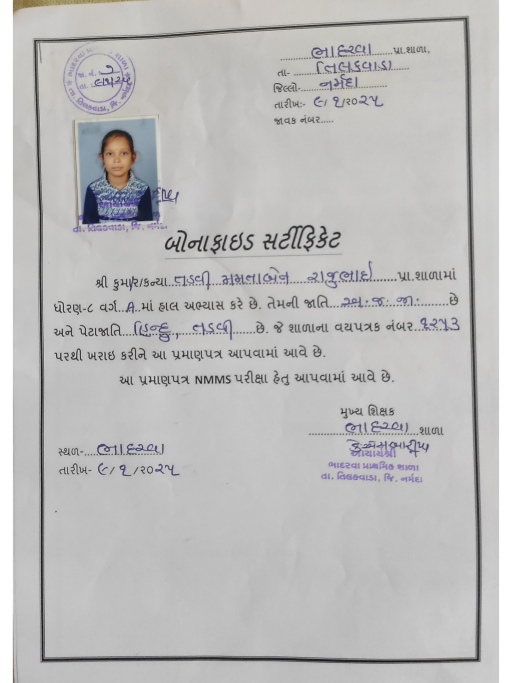 ભાદરવા પ્રા.શાળા,
તા- તિલકવાડા
જિલ્લો- નર્મદા
તારીખ:- ૯/૧/૨૦૨૫
જાવક નંબર.....
તા. તિલકવાડા, જિ. નર્મદા
બોનાફાઇડ સર્ટીફિકેટ
શ્રી કુમાર/કન્યા તડવી મમતાબેન રાજુભાઇ પ્રા.શાળામાં
ધોરણ-૮ વર્ગ A માં હાલ અભ્યાસ કરે છે. તેમની જાતિ અ.જ.જા. છે
અને પેટાજાતિ હિન્દુ, તડવી છે. જે શાળાના વયપત્રક નંબર ૧૨૫૩
પરથી ખરાઇ કરીને આ પ્રમાણપત્ર આપવામાં આવે છે.
આ પ્રમાણપત્ર NMMS પરીક્ષા હેતુ આપવામાં આવે છે.
મુખ્ય શિક્ષક
ભાદરવા શાળા
આચાર્યશ્રી
ભાદરવા પ્રાથમિક શાળા
તા. તિલકવાડા, જિ. નર્મદા
સ્થળ- ભાદરવા
તારીખ- ૯/૧/૨૦૨૫